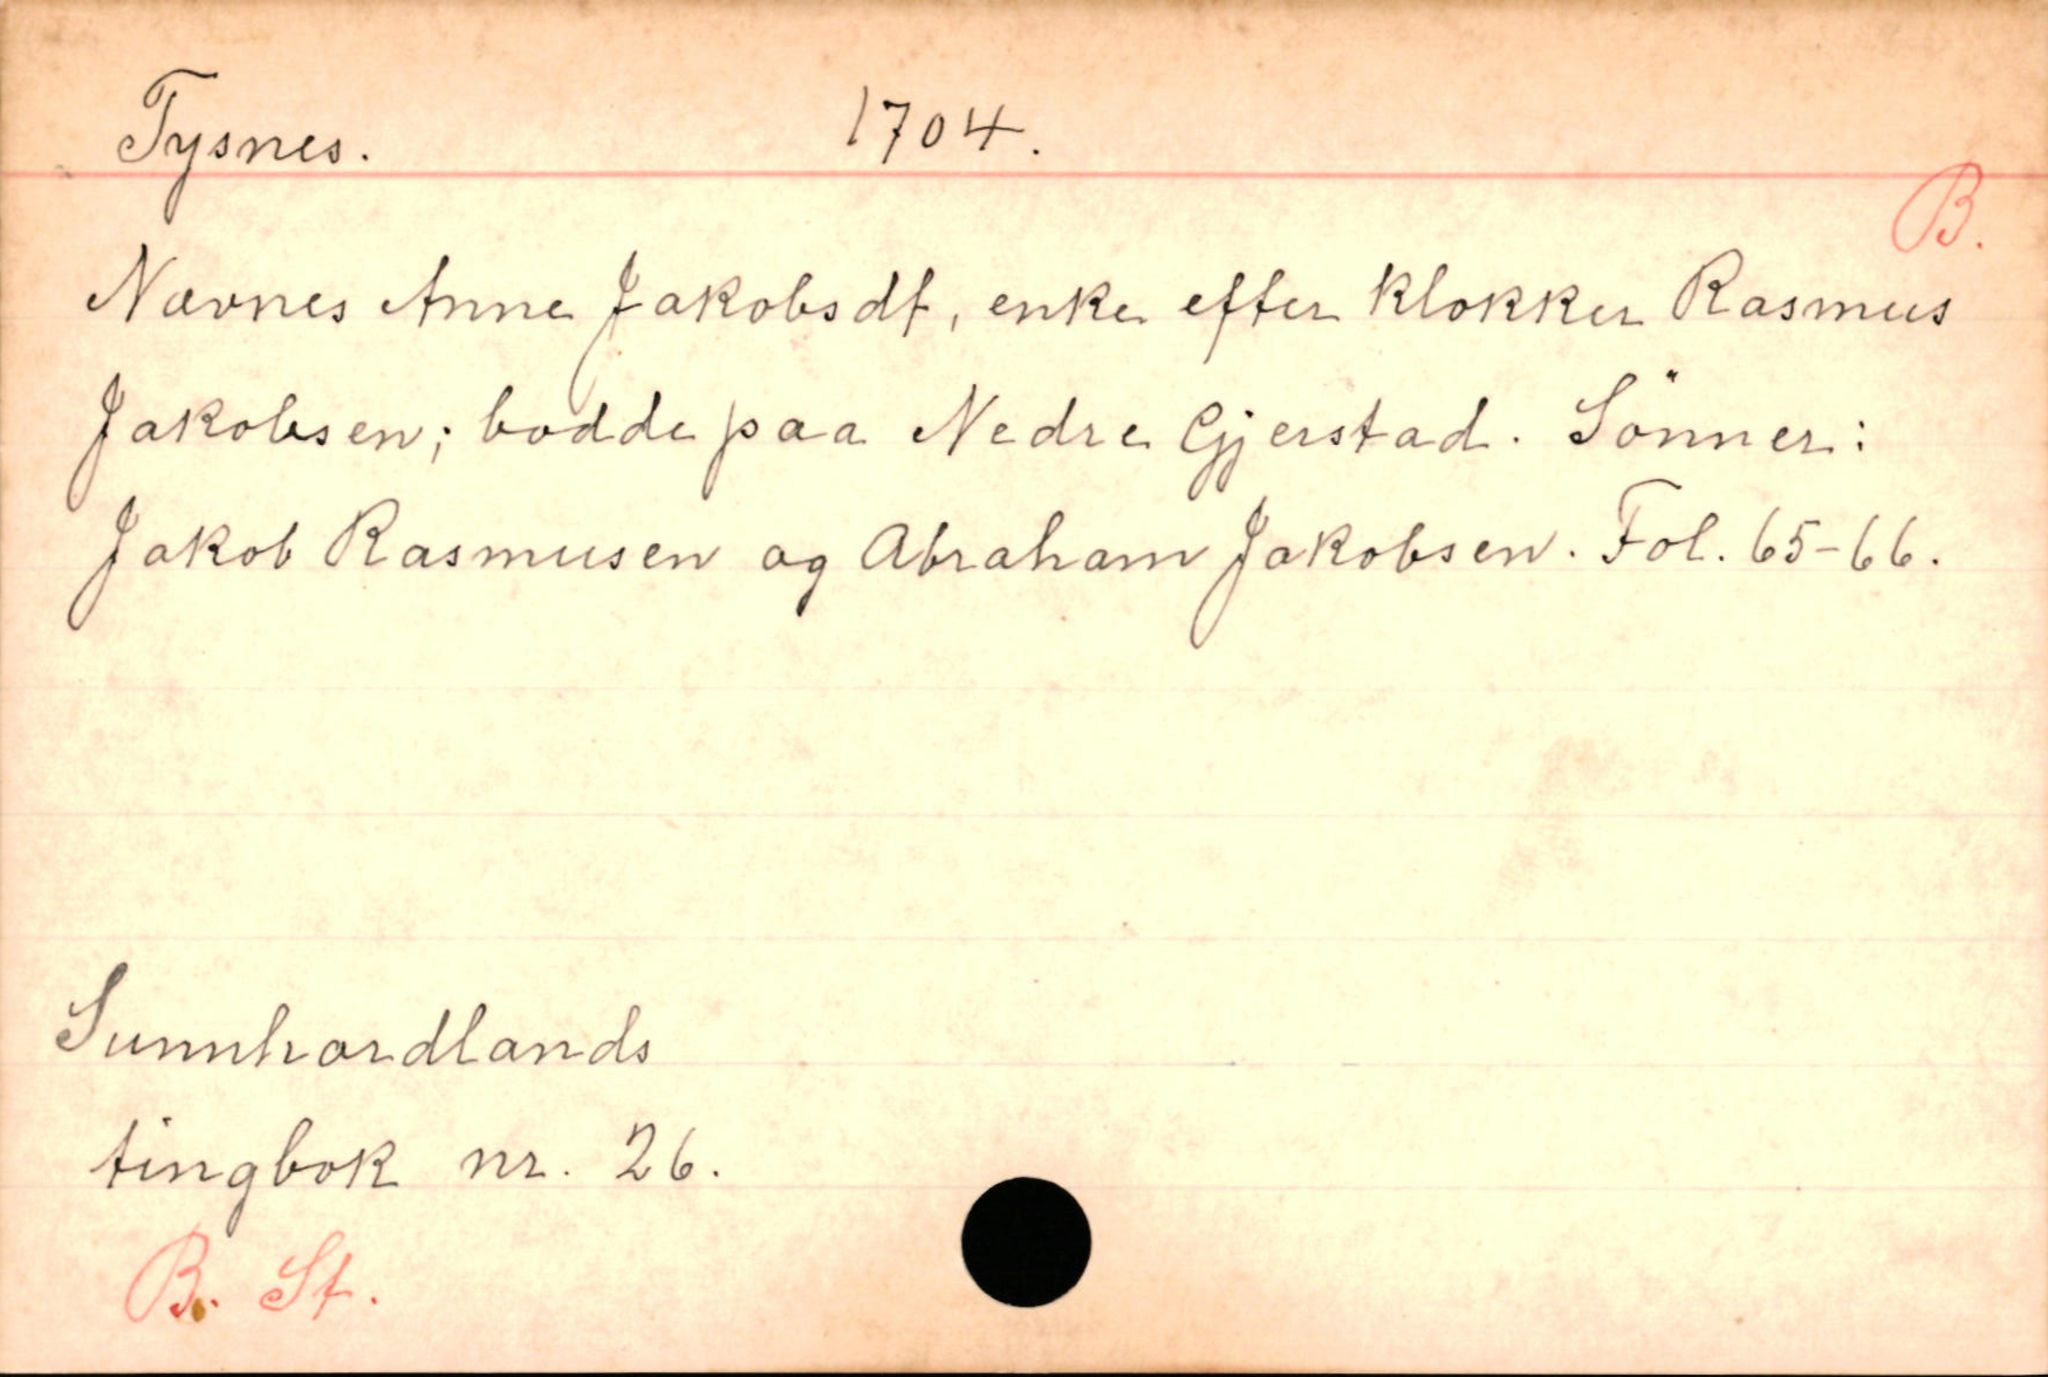 Tysnes. 1704.
B.
Nævnes Anne Jakobsdt, enke efter klokker Rasmus
Jakobsen; bodde paa Nedre Gjerstad. Sönner:
Jakob Rasmusen og Abraham Jakobsen. Fol. 65-66.
Sunnhordlands
tingbok nr. 26.
B. St.